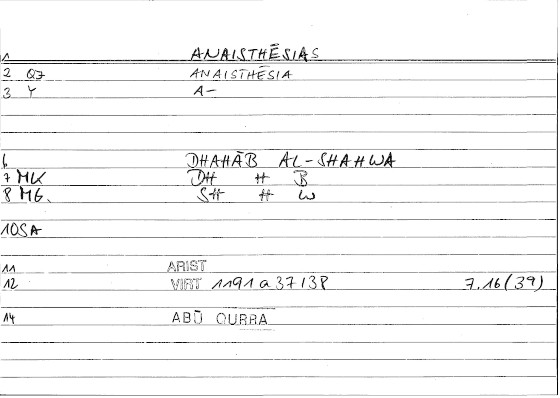 1 ANAISTHĒSIAS
2 Q7 ANAISTHĒSIA
3 Y A-
6 DHAHĀB AL-SHAHWA
7 MK DH H B
8 MG. SH H W
10 SA
11 ARIST
12 VIRT 1191a37138 7.16(39)
14 ABŪ QURRA